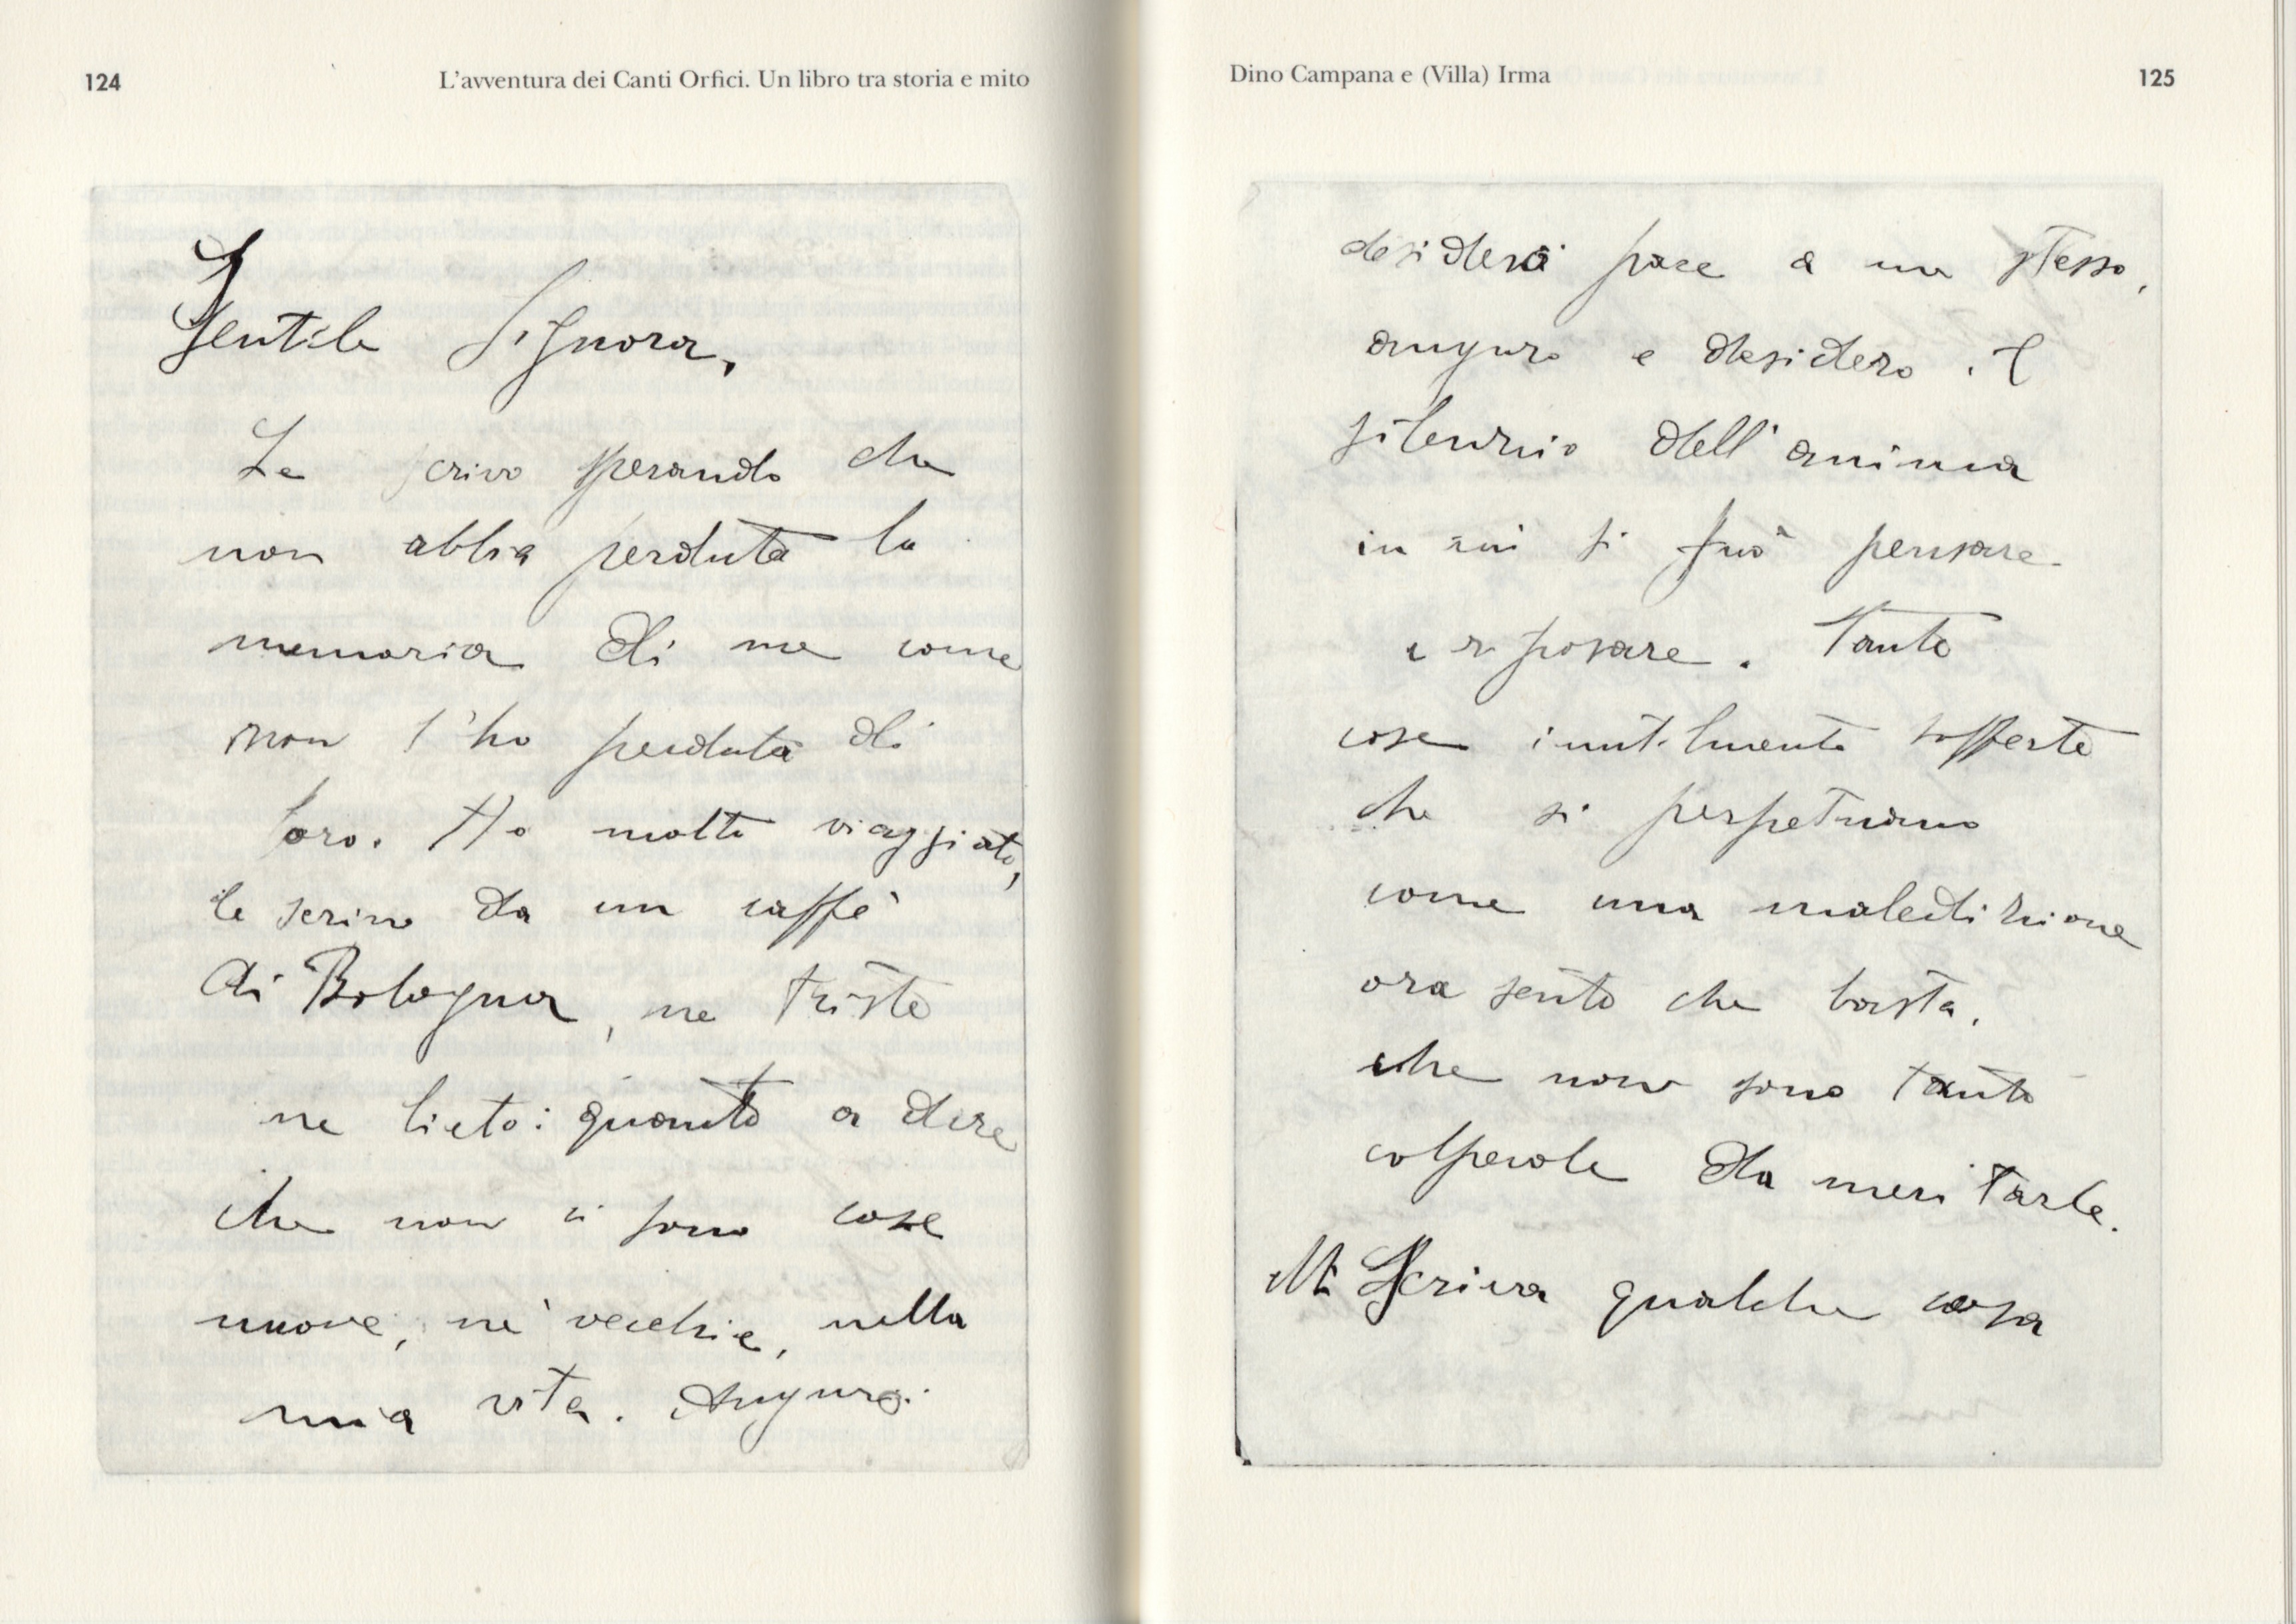 124
L'avventura dei Canti Orfici. Un libro tra storia e mito
Gentile Signora,
Le scrivo sperando che
non abbia perduta la
memoria di me come
non l'ho perduta di
loro. Ho molto viaggiato,
le scrivo da un caffè
di Bologna, ne triste
ne lieto: quanto a dire
che non ci sono cose
nuove, nè vecchie, nella
mia vita. Auguro
Dino Campana e (Villa) Irma
125
desidera pace a me stesso,
auguro e desidero. Il
silenzio dell'anima
in cui si può pensare
e riposare. Tante
cose inutilmente sofferte
che si perpetuano
come una maledizione
ora sento che basta,
che non sono tanto
colpevole da meritarle.
Mi Scriva qualche cosa